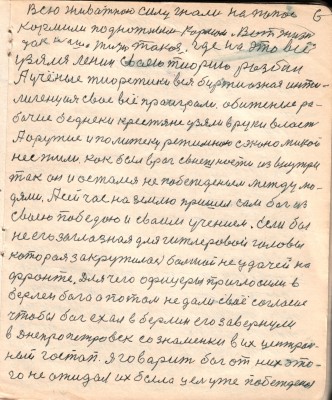 Всю животною силу гнали на
кормили подножным кормом. Вот жизь
так жизь такая. Где на это всё
узяли ленин свою тиорию разбил
А учёные тиоретики вся буржуазная инти-
лигенция свае всё проиграли. обиженые ра-
бочие бедняки крестяне узяли в руки власть
А оружие и политеку режимною с экономикой
нес жили. как был враг сашности из внутри
так он и остался не побежденым между лю-
дями. А сейчас на землю пришел сам бог из
своею победою и своим учением. Если бы
не его заглазная для гитлеровой головы
которая закружилас болшой не удачей на
фронте, для чего офицеры пригласили в
берлен бога а потом не дали своё согласие
чтобы бог ехал в берлин его завернули
в днепропетровск со знаменки в их централ-
ный гостап. Я говарит бог от них это-
го не ожидал их была цел уже побежденая